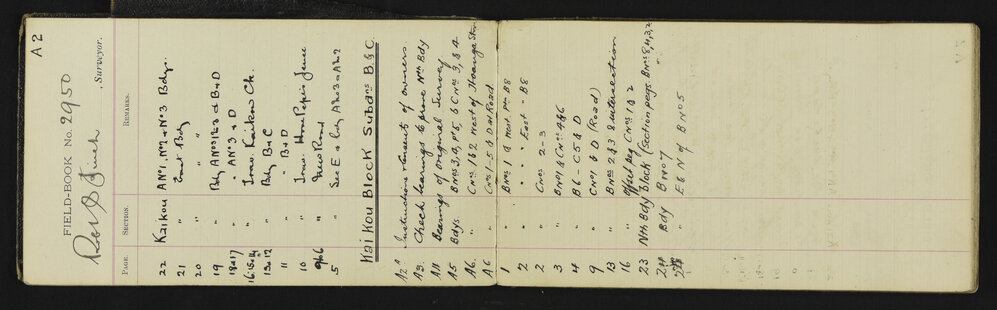 A2
FIELD-BOOK No. 2950
Surveyor.
PAGE. SECTION. REMARKS.
22 Kaikou A No 1, No 2 & No 3 Bdy.
21 " East Bdy
20 " "
19 " Bdy A Nos 1 2 & 3 & B & D
18 & 17 " " A No 3 & D
" Trav. Kaikou Ck.
13 & 12 " Bdy B & C
11 " " B & D
10 " Trav. Fence
9 & 6 " New Road
5 " See E & bdy A No 3 & A No 2
Kaikou Block Subdns B. & C.
A2a Instructions & consents of owners
A3. Check bearings to prove Nth Bdy
A4 Bearings of original Survey
A5 Bdys B Nos 3, 4, pt 5, & C Nos 3, & 4
A6. " C Nos 1 & 2 West of Stm
A6 " C Nos - 5 & D on Road
1 " B Nos 1 & West pt B8
2 " " " East " B8
2 " C Nos 2 - 3
3 " B No 1 & C No 4 & 6
4 " B6 - C5 & D
9 " C No 1 & D (Road)
13 " B Nos 2 & 3 & intersection
16 " Offset peg C Nos 1 & 2
23 Nth Bdy Block (Section pegs B Nos 8, 4, 3, 2
24 Bdy B No 7
" E & N of B No 5